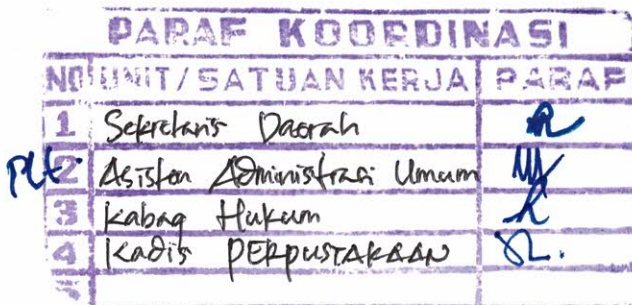 PARAF KOORDINASI
NO UNIT/SATUAN KERJA PARAF
1 Sekretaris Daerah
Plt. 2 Asisten Administrasi Umum
3 Kabag Hukum
4 Kadis PERPUSTAKAAN